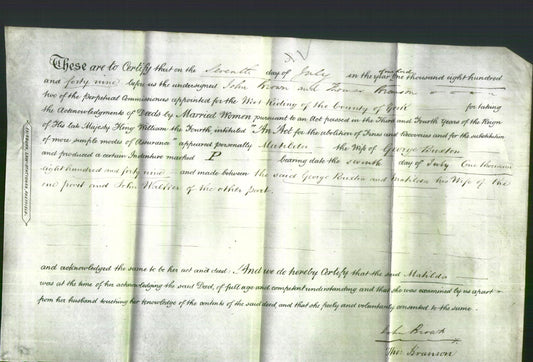 These are to Certify that on the Seventh day of July in the year of our Lord one thousand eight hundred
and forty nine before us the undersigned John Brown and Thomas Branson
two of the Perpetual Commissioners appointed for the West Riding of the County of York for taking
the Acknowledgments of Deeds by Married Women pursuant to an Act passed in the Third and Fourth Years of the Reign
of His late Majesty King William the Fourth intituled "An Act for the abolition of Fines and Recoveries and for the substitution
of more simple modes of Assurance" appeared personally Matilda the Wife of George Buxton
and produced a certain Indenture marked P bearing date the seventh day of July One thousand
eight hundred and forty nine and made between the said George Buxton and Matilda his Wife of the
one part and John Webster of the other part.
and acknowledged the same to be her act and deed. And we do hereby Certify that the said Matilda
was at the time of her acknowledging the said Deed, of full age and competent understanding and that she was examined by us apart
from her husband touching her knowledge of the contents of the said deed, and that she freely and voluntarily consented to the same.
John Brown
Thos Branson